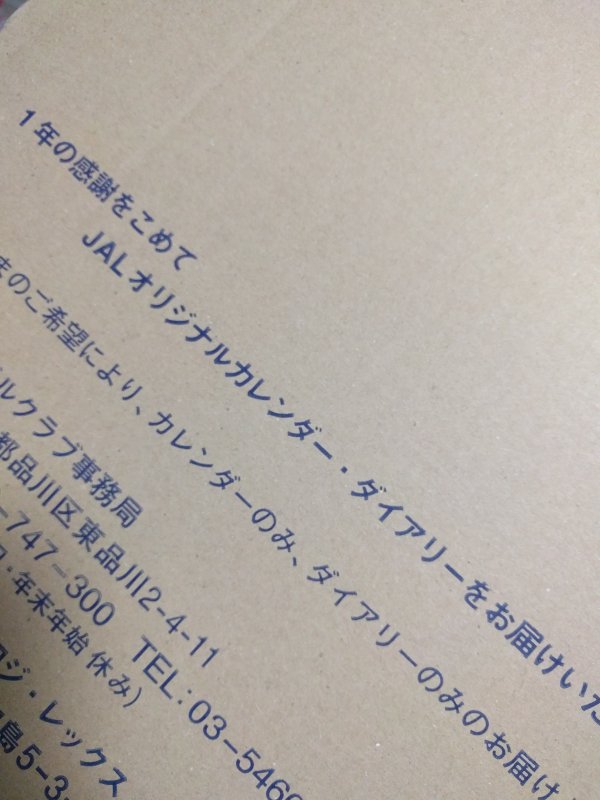 1年の感謝をこめて
JALオリジナルカレンダー・ダイアリーをお届けいた
まのご希望により、カレンダーのみ、ダイアリーのみのお届け
ルクラブ事務局
都品川区東品川2-4-11
-747-300 TEL:03-5460
年末年始 休み)
ロジ・レックス
島5-3-